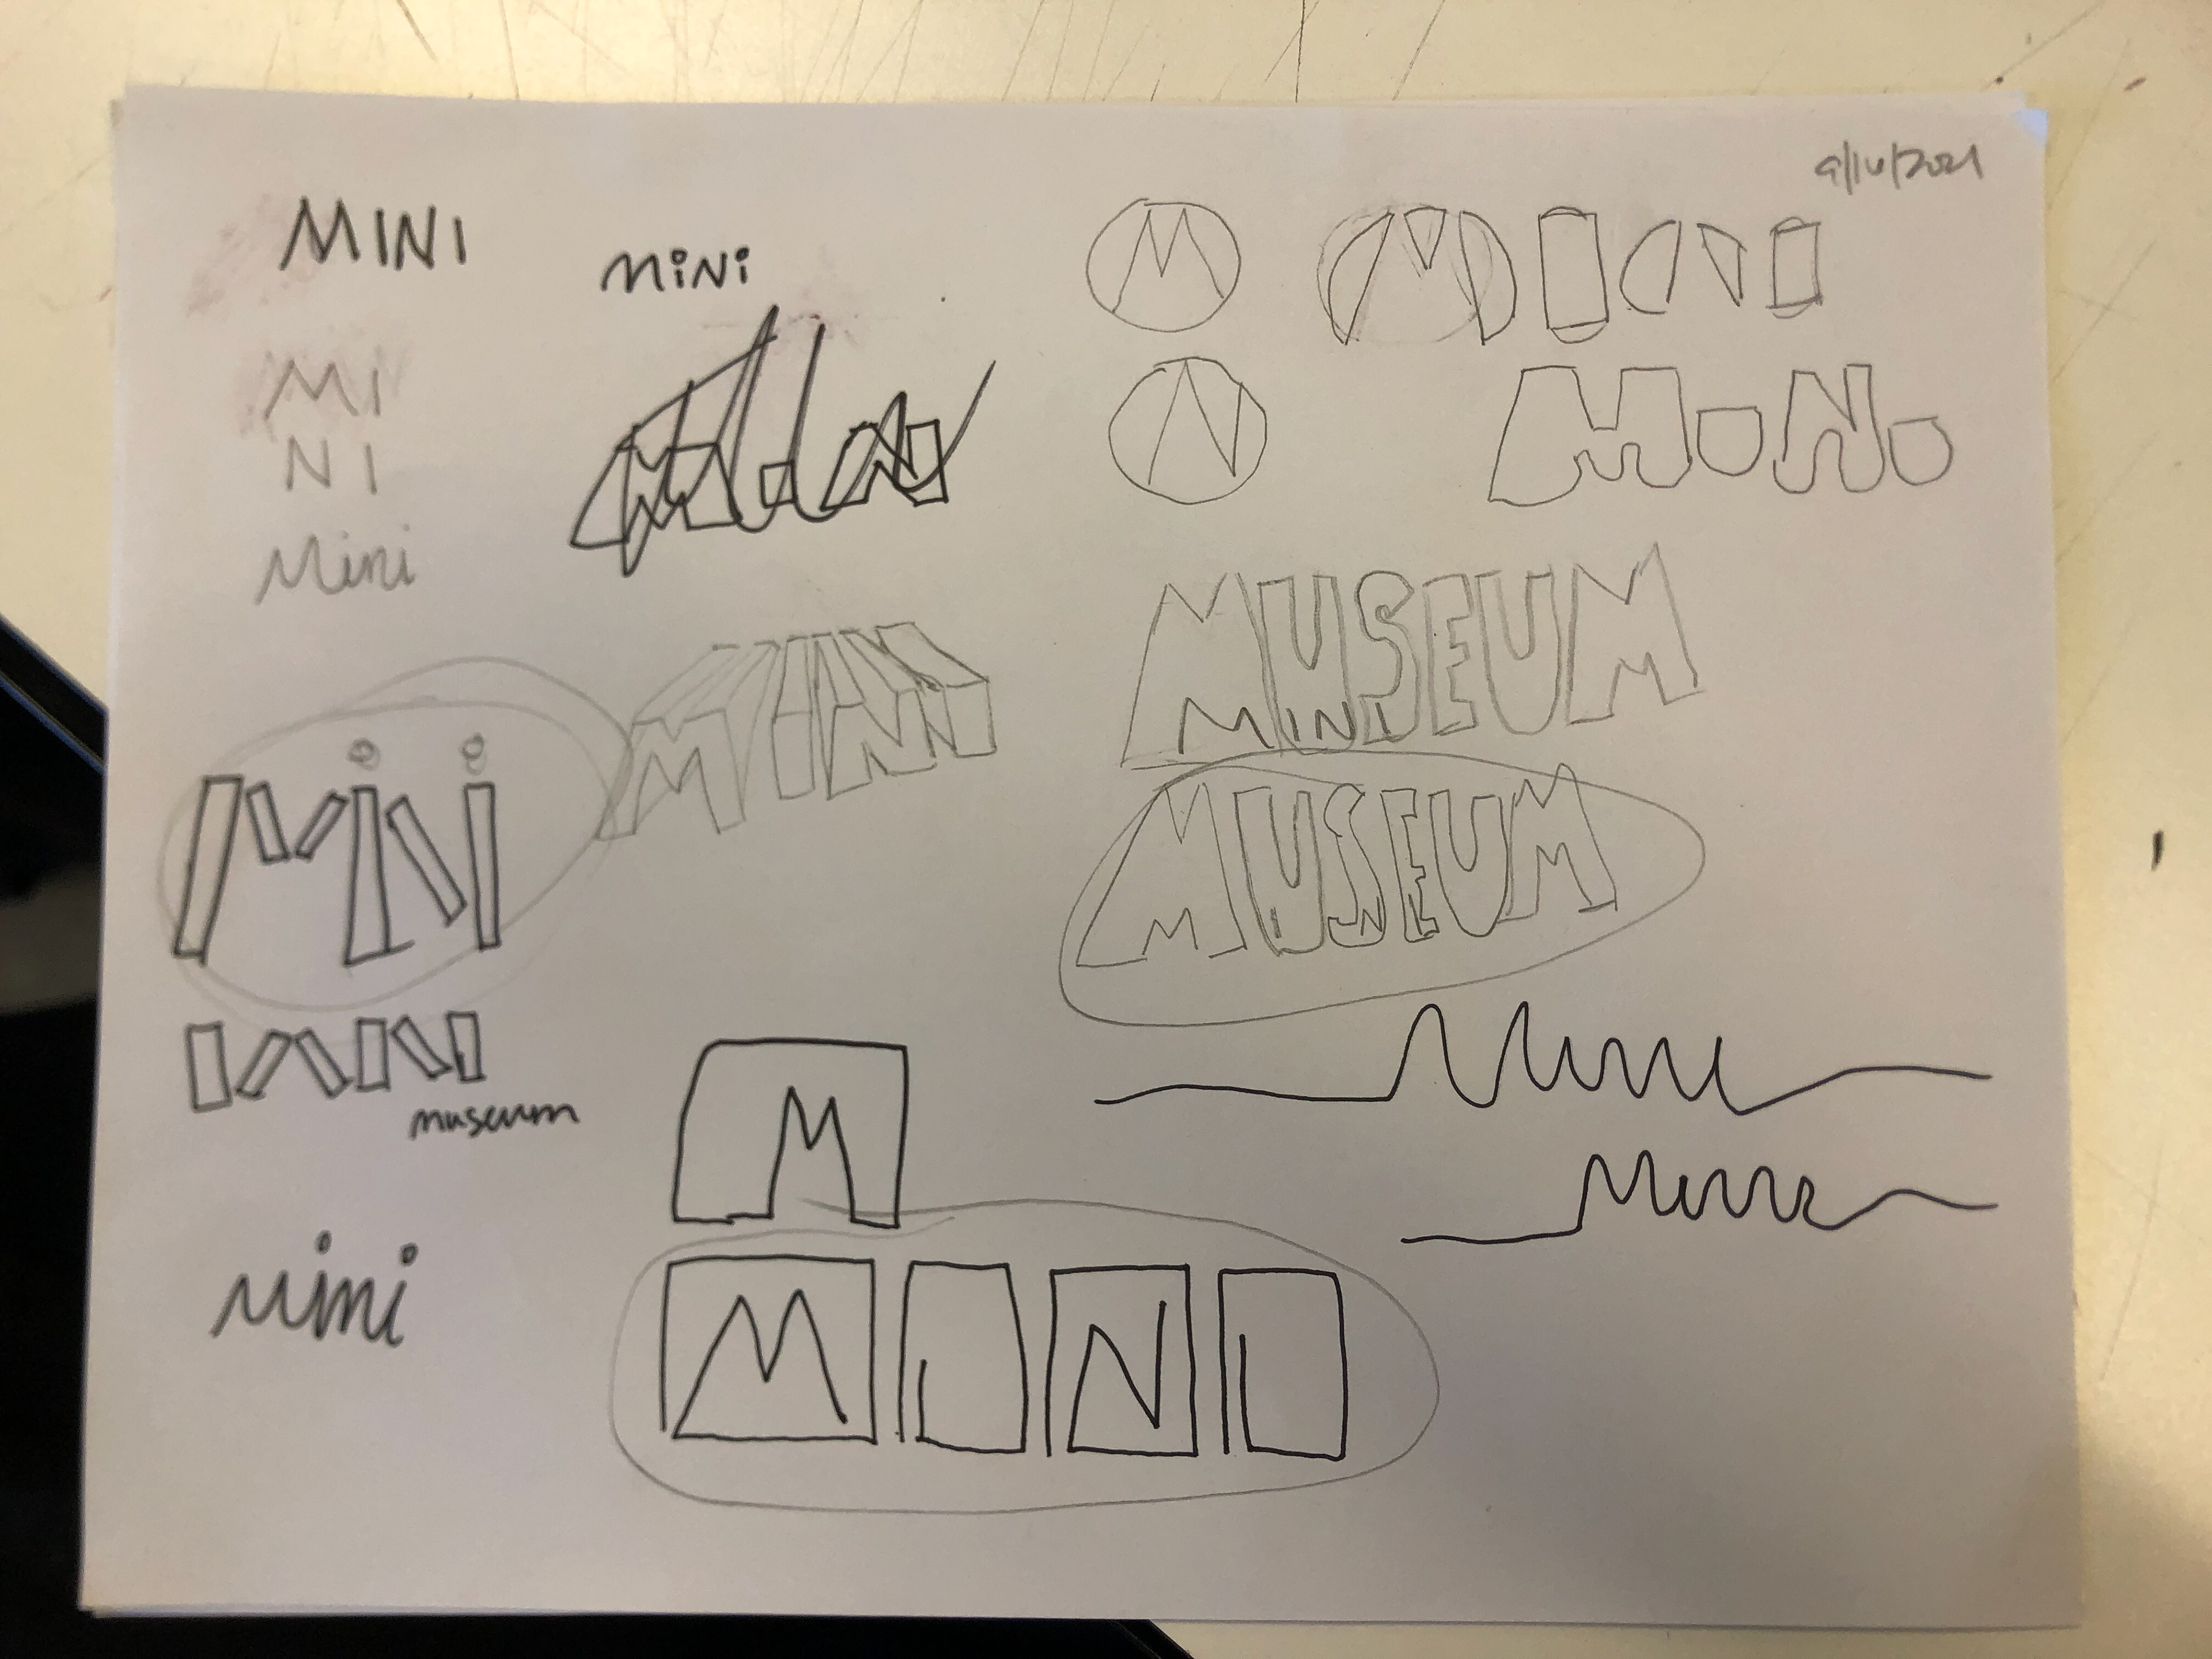 9/16/2021
MINI
MiNi
M
MINI
MI
NI
N
MiNi
Mini
MUSEUM
MINI
MINI
MiNi
MUSEUM
MINI
museum
M
Mini
Mini
mini
MINI